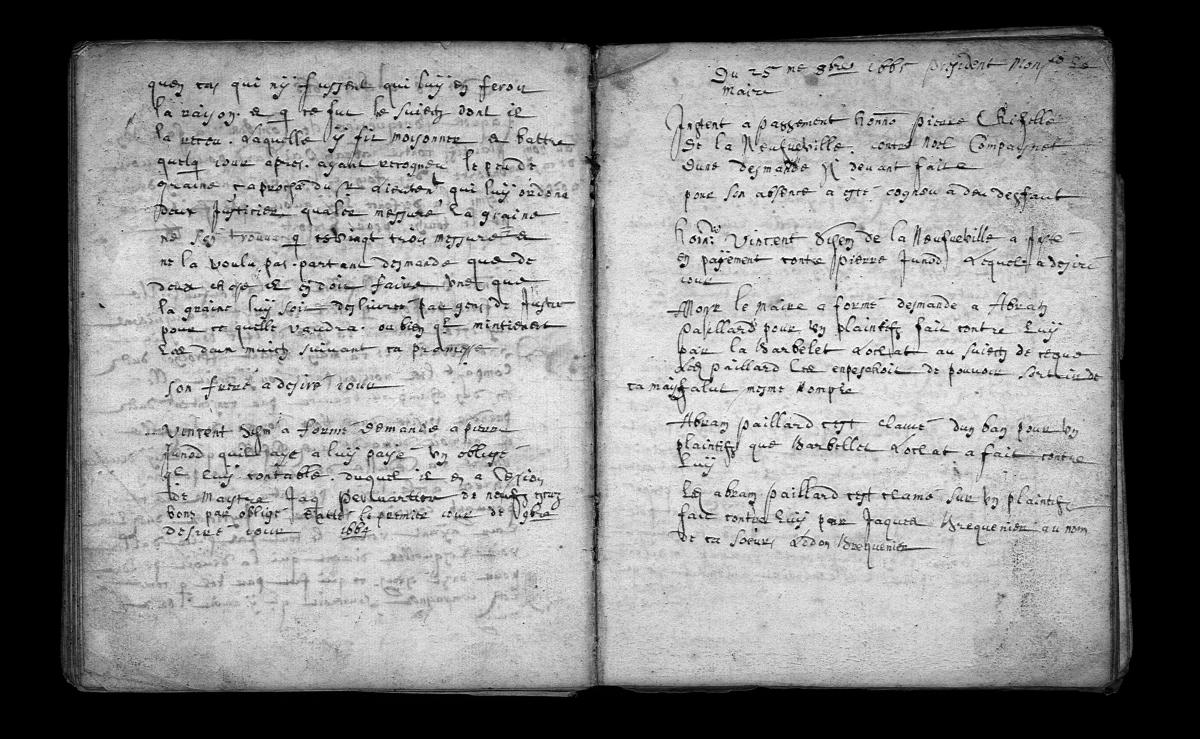 quen cas qui ny fussent qui luy en feroit
la raison. & q ce fut le suiect dont il
la receu. Laquelle yl fit moisonner & battre
quelq iour apres. ayant recogneu le peu de
graine, s'aprocha du Sr Lieuten qui luy ordona
pour justicier qualer messure la graine
ne sen trouva q vingt trois messures &
ne la voulu pas. partant desmande que de
deux chose il en doit faire une que
la graine luy soit deslivree par gens de Justice
pour ce quelle vaudra. ou bien ql maintienent
suivant sa promesse
son frere a desire iour
Vincent a formé demande a pierre
Junod quil paye a luy payé un obligé
ql luy contable. duquel il en a cession
de Maistre Jaq Perwartier de neufz
bons par obligé datté le premier iour de 9bre
desiré iour 1664
Du 25 me 8bre 1665 president Monsr le
Maire
Instent a passement honno pierre Chiffelle
de la Neufveville. contre Noel Compagnet
dune desmande cy devant faite
pour son absence a esté cogneu a deu deffaut
honno Vincent de la Neufveville a
en payement contre pierre Junod Lequel a desiré
iour
Monsr le Maire a formé desmande a Abram
Paillard pour un plaintifz fait contre Luy
par la Barbelet Loclat au suiect de ceque
Led paillard Lee enpeschoit de pouvoir sortir de
sa maison mesme Rompre
Abram paillard cest clamé dun ban pour un
plaintifz que Barbellet Loclat a fait contre
Luy
Led abram paillard cest clamé sur un plaintifz
fait contre Luy par Jaques Brequenier au nom
de sa soeur Brequenier